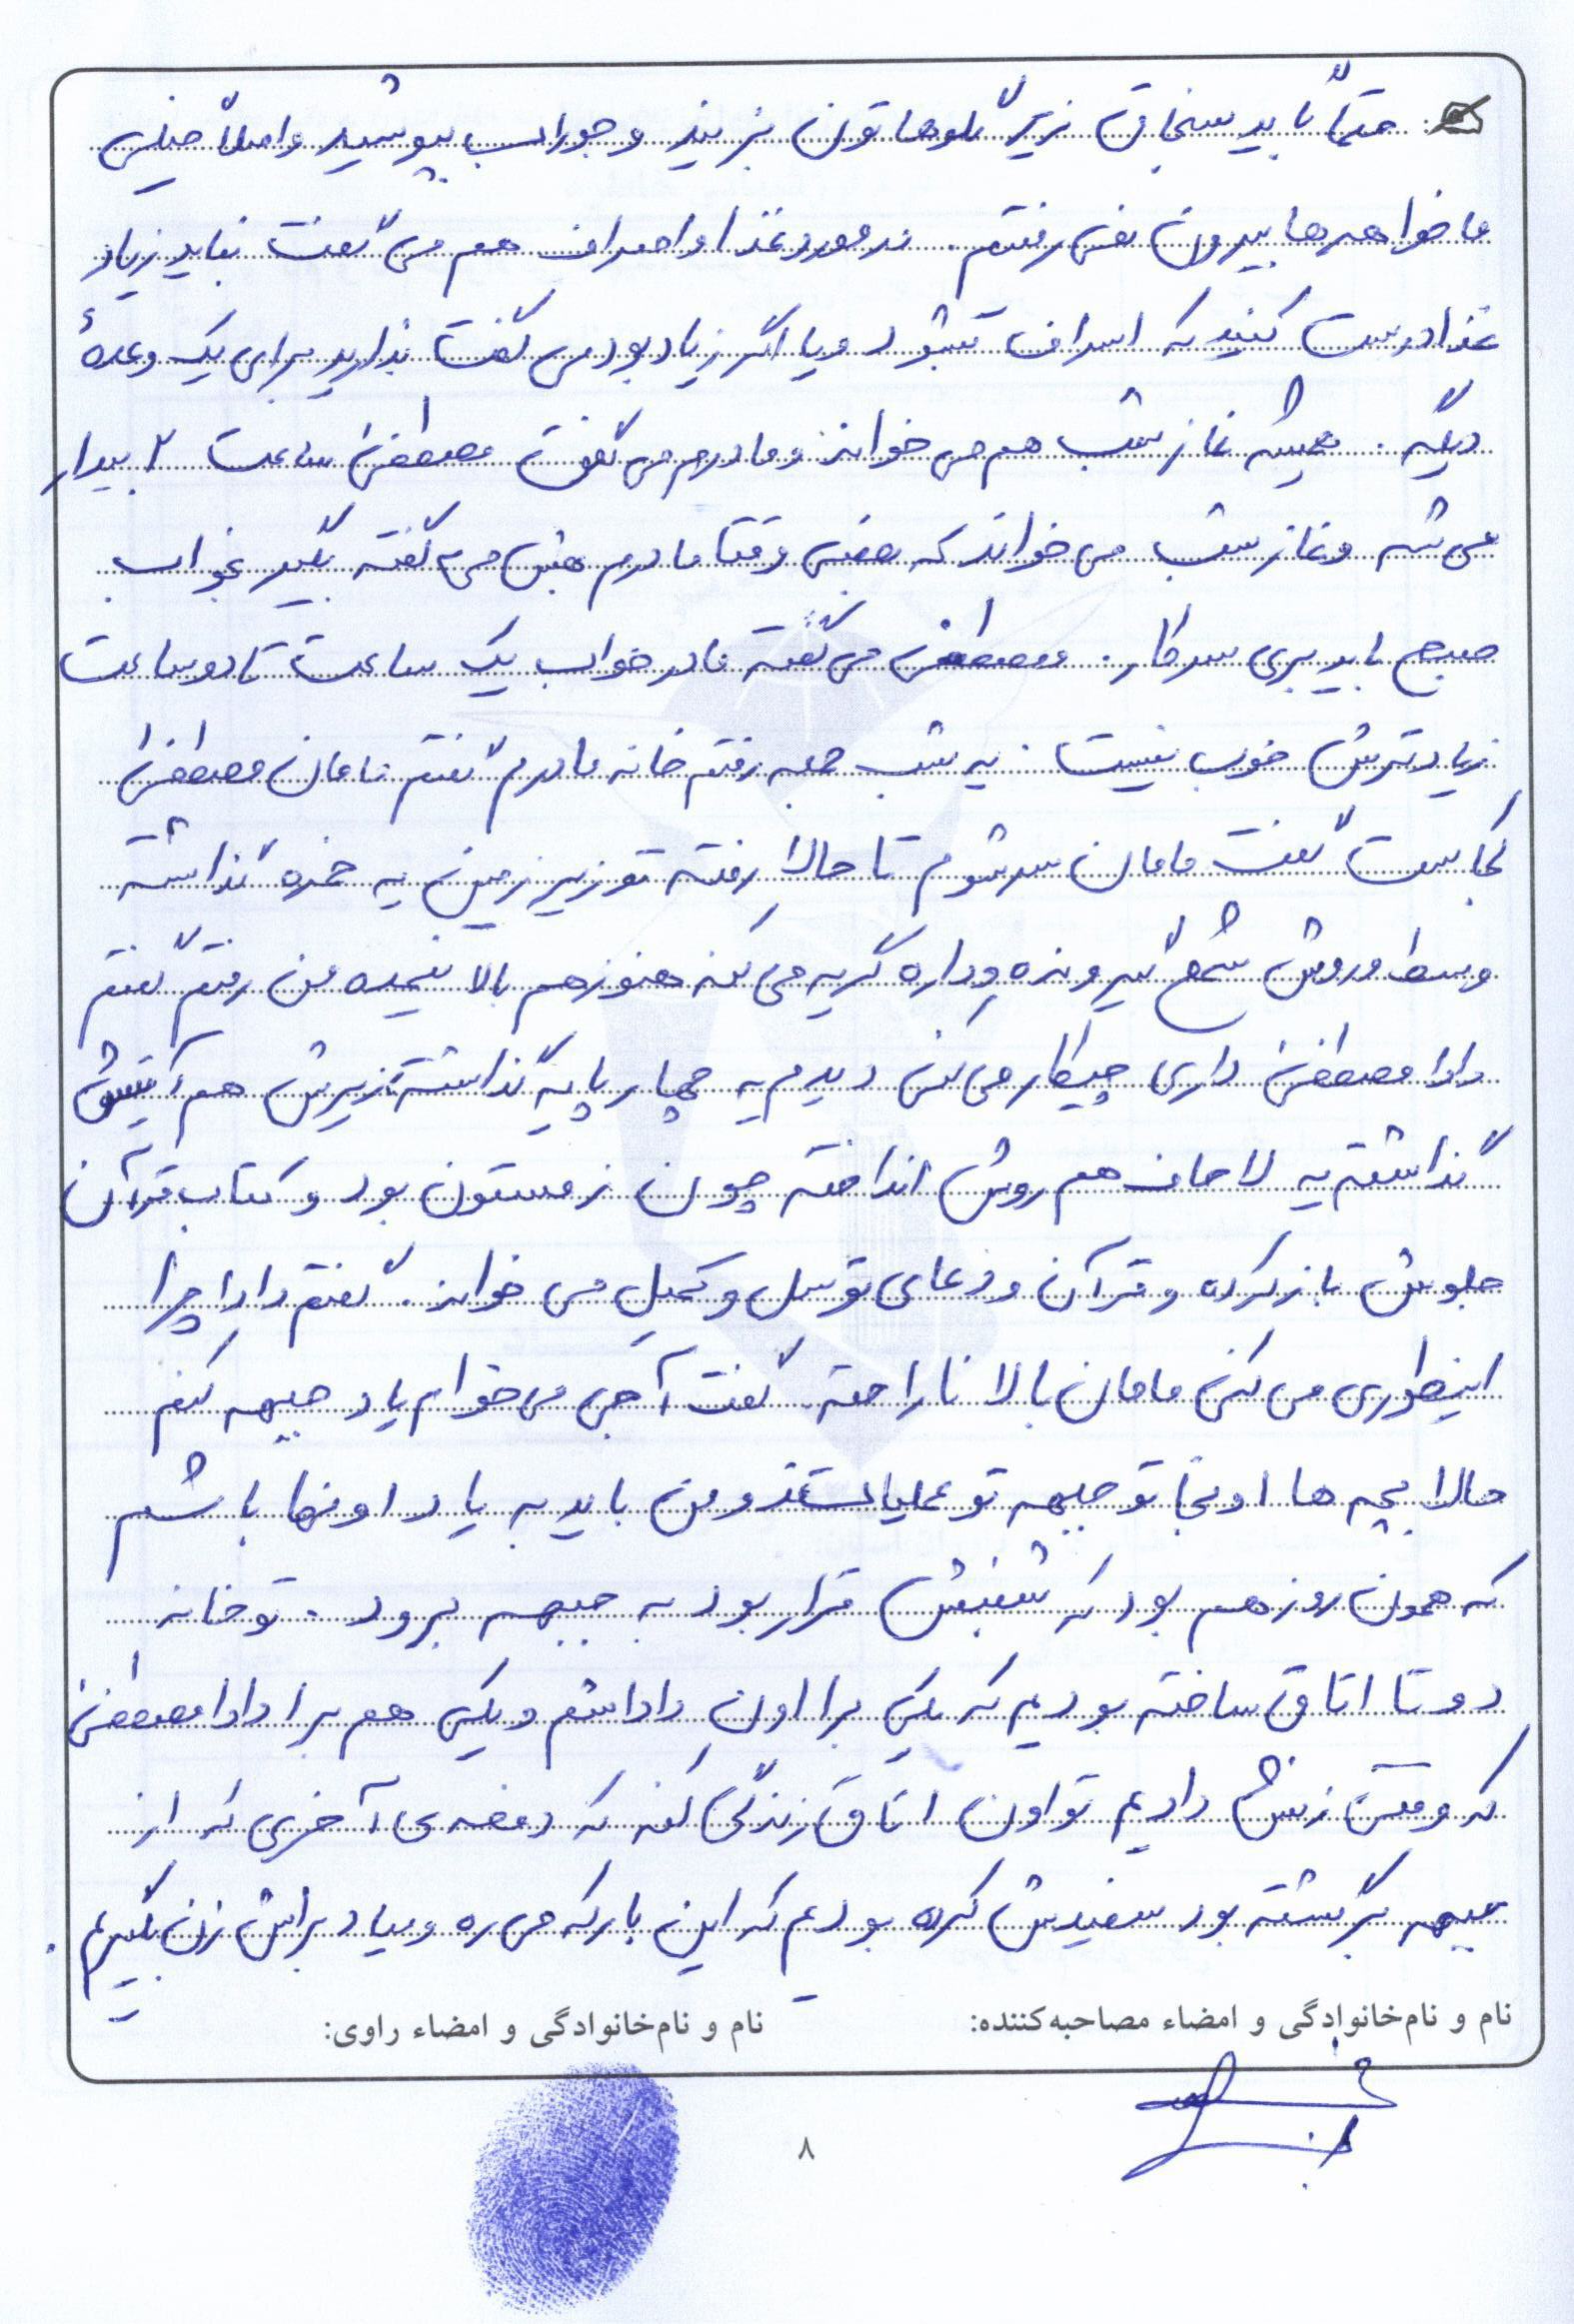 حتماً باید سنجاق زیر گلوهاتون بزنید و جوراب بپوشید و اصلاً خیلی
ما خواهرها بیرون نمی رفتیم. در مورد غذا و اصراف هم می گفت نباید زیاد
غذا درست کنید که اسراف بشود و یا اگر زیاد بود می گفت بذارید برای یک وعدهٔ
دیگه. همیشه نماز شب هم می خواند و مادرم می گفت مصطفی ساعت ۲ بیدار
می شه و نماز شب می خواند که بعضی وقتا مادرم بهش می گفته بگیر بخواب
صبح باید بری سر کار. مصطفی می گفته مادر خواب یک ساعت تا دو ساعت
زیادترش خوب نیست. یه شب جمعه رفتم خانه مادرم گفتم مامان مصطفی
کجاست گفت مامان سرشوم تا حالا رفته تو زیرزمین یه خمره گذاشته
وسط و روش شمع گیرونده و داره گریه می کنه هنوز هم بالا نیمده من رفتم گفتم
دادا مصطفی داری چیکار می کنی دیدم یه چهار پایه گذاشته زیرش هم آتیش
گذاشته یه لاحاف هم روش انداخته چون زمستون بود و کتاب قرآن
جلوش باز کرده و قرآن و دعای توسل و کمیل می خواند. گفتم دادا چرا
اینطوری می کنی مامان بالا ناراحته. گفت آجی می خوام یاد جبهه کنم
حالا بچه ها اونجا تو جبهه تو عملیاتند و من باید به یاد اونها باشم
که همون روز هم بود که شبش قرار بود به جبهه برود. تو خانه
دو تا اتاق ساخته بودیم که یکی برا اون داداشم و یکی هم برا دادا مصطفی
که وقتی زنش دادیم تو اون اتاق زندگی کنه که دفعه ی آخری که از
جبهه برگشته بود سفیدش کرده بودیم که این بار که می ره و میاد براش زن بگیریم.
نام و نام‌خانوادگی و امضاء مصاحبه‌کننده: نام و نام‌خانوادگی و امضاء راوی:
۸